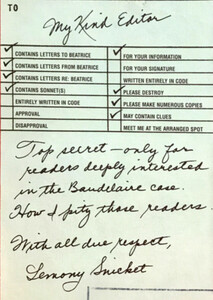 TO
My Kind Editor
CONTAINS LETTERS TO BEATRICE
FOR YOUR INFORMATION
CONTAINS LETTERS FROM BEATRICE
FOR YOUR SIGNATURE
CONTAINS LETTERS RE: BEATRICE
WRITTEN ENTIRELY IN CODE
CONTAINS SONNET(S)
PLEASE DESTROY
ENTIRELY WRITTEN IN CODE
PLEASE MAKE NUMEROUS COPIES
APPROVAL
MAY CONTAIN CLUES
DISAPPROVAL
MEET ME AT THE ARRANGED SPOT
Top secret - only for
readers deeply interested
in the Baudelaire case.
How I pity those readers.
With all due respect,
Lemony Snicket